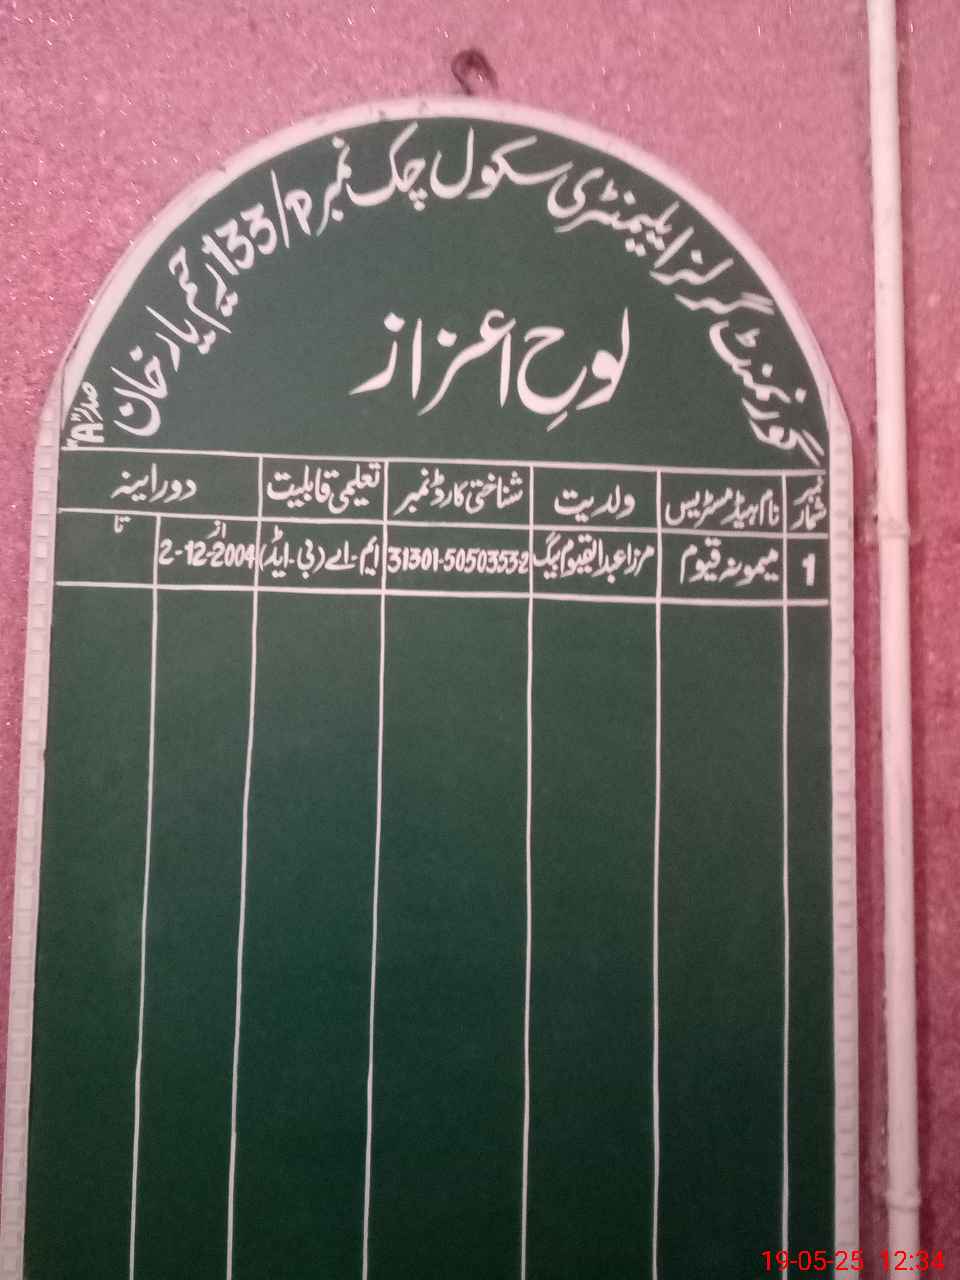 گورنمنٹ گرلز ایلیمنٹری سکول چک نمبر 133/P رحیم یار خان
صدر "A"
لوحِ اعزاز
نمبر شمار نام ہیڈ مسٹریس ولدیت شناختی کارڈ نمبر تعلیمی قابلیت دورانیہ
از تا
1 میمونہ قیوم مرزا عبدالقیوم بیگ 31301-5050353-2 ایم-اے (بی-ایڈ) 2-12-2004
19-05-25 12:34